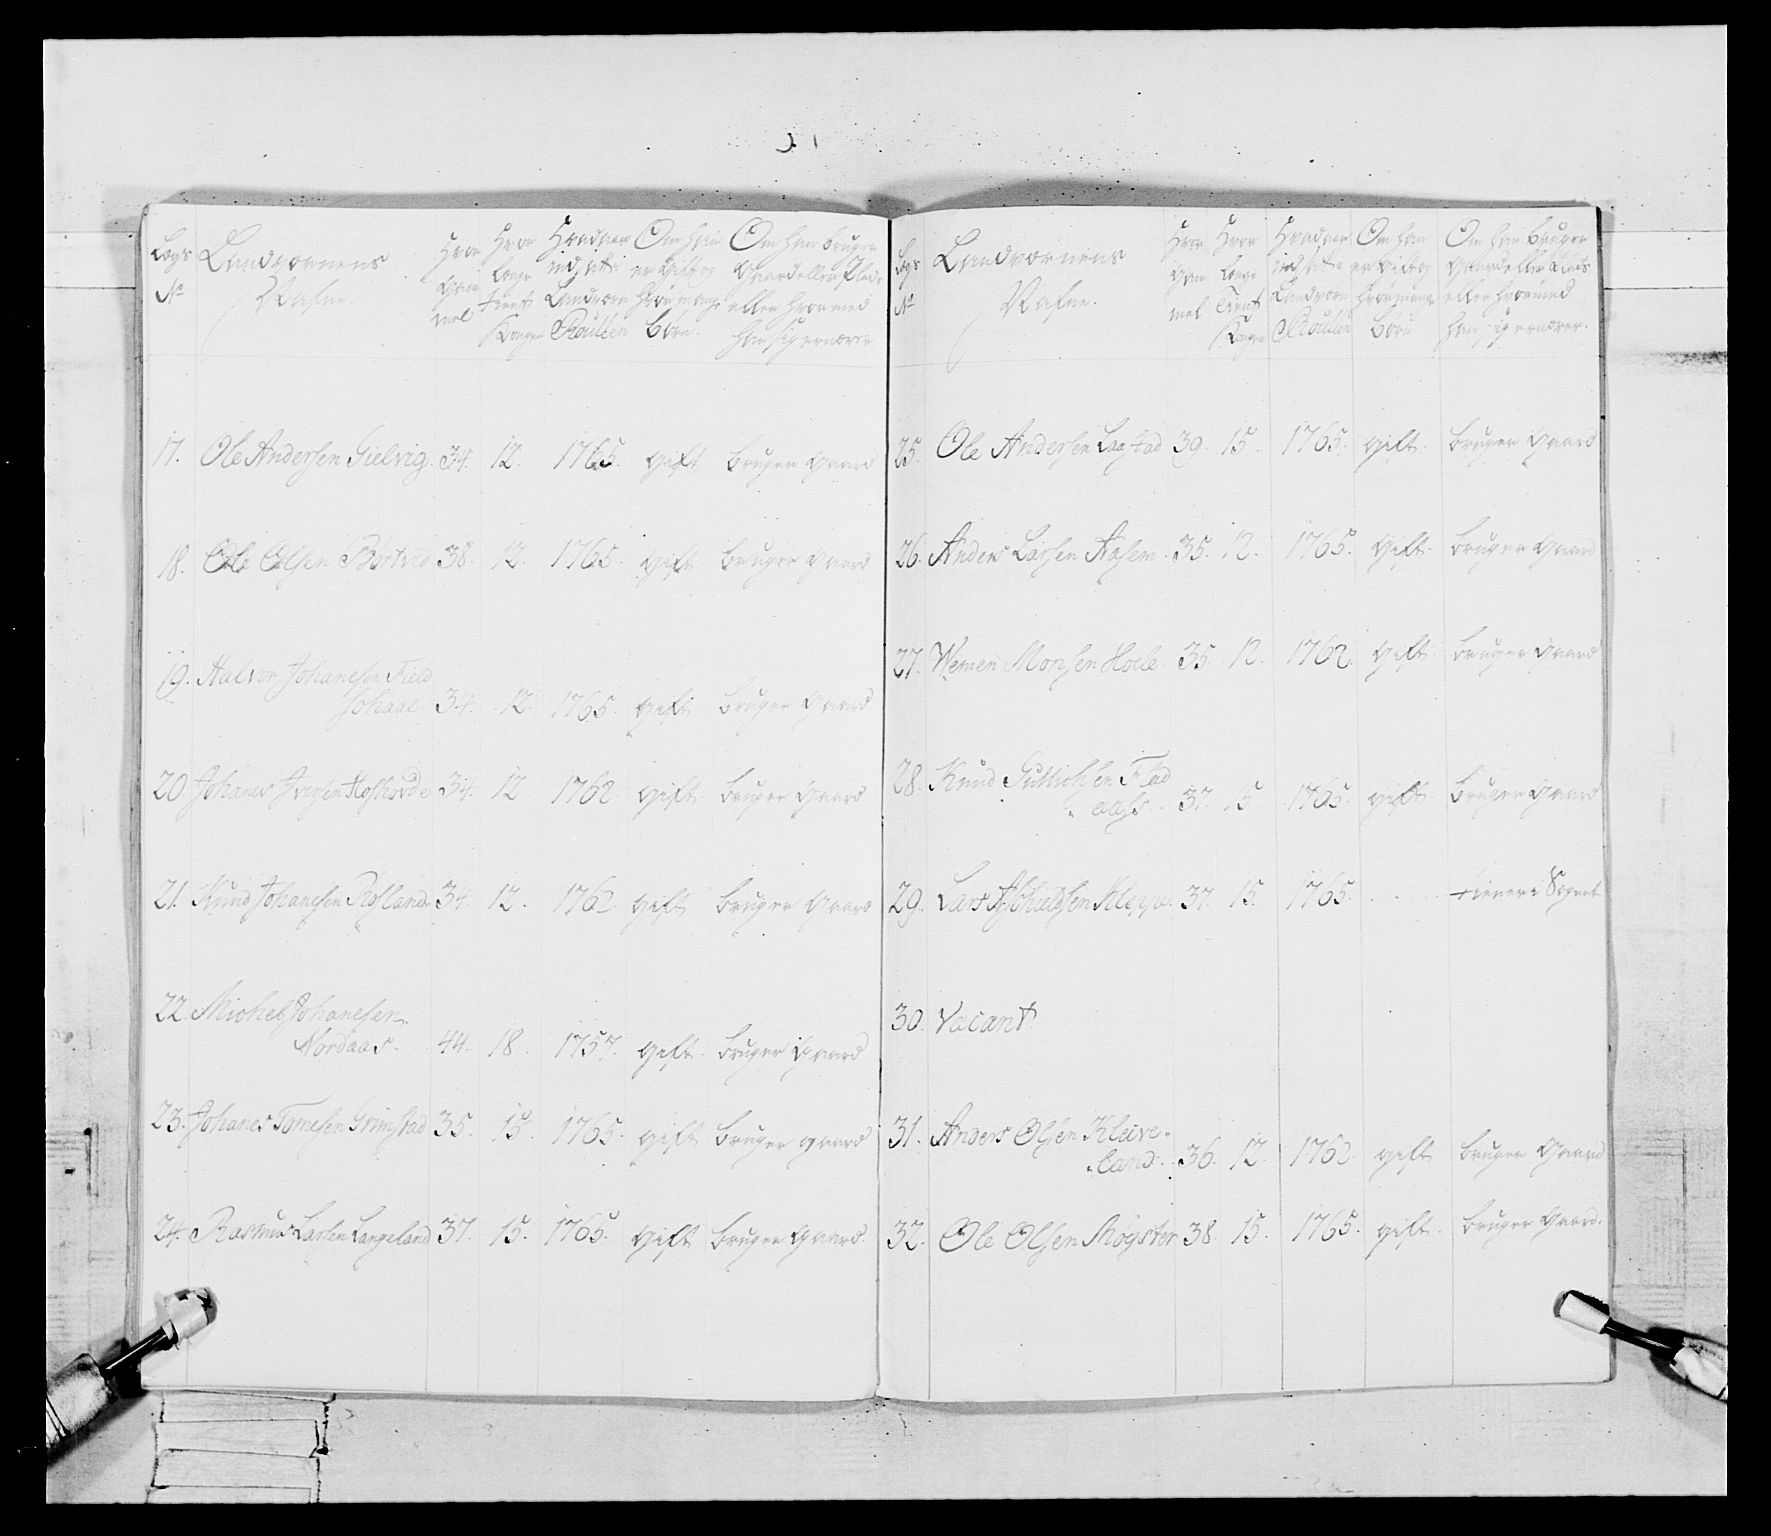 Legs No Landværnens Nafne. Hvor Gam̅el Hvor længe tient Kongen Hvad aar indsatt i Landværn Roullen Om han er Gift og hvor mange Børn. Om han bruger Gaard eller Plads eller hvormed han sig ernærer
17. Ole Andersen Gielvig. 34. 12. 1765. gift bruger gaard
18. Ole Olsen 38. 12. 1765. gift bruger gaard
19. Halvor Johanesen Field
Schaae. 34. 12. 1765. gift bruger gaard
20. Johanes Iversen Hofshovde 34. 12 1762. gift bruger gaard
21. Knud Johanesen Røfland. 34. 12. 1762. gift bruger Gaard
22. Michel Johanesen
Nordaas. 44. 18. 1757. gift. bruger gaard
23. Johanes Tomesen Grimstad 35. 15. 1765. gift bruger gaard
24. Rasmus Larsen Langeland 37. 15. 1765. gift bruger gaard.
Legs No Landværnens Nafne. Hvor gam̅el Hvor længe tient Kongen Hvad aar ind satte Landværn Roullen Om han er Gift og hvor mange Børn Om han bruger gaard eller Plads eller hvormed han sig ernærer.
25. Ole Andersen Laastad 39. 15. 1765. gift. bruger gaard
26. Anders Larsen Aasem. 35. 12. 1765. gift. bruger gaard
27. Wemen Monsen Hole. 35. 12. 1762. gift bruger gaard
28. Knud Gullichsen Flad
aass. 37. 15 1765. gift. bruger gaard
29. Lars Aschieldsen Kleppe. 37. 15. 1765. . . . tiener i Sognet
30. Vacant.
31. Anders Olsen Kleive-
land. 36. 12. 1762 gift bruger gaard
32. Ole Olsen Møgster 38. 15. 1765. gift. bruger gaard.